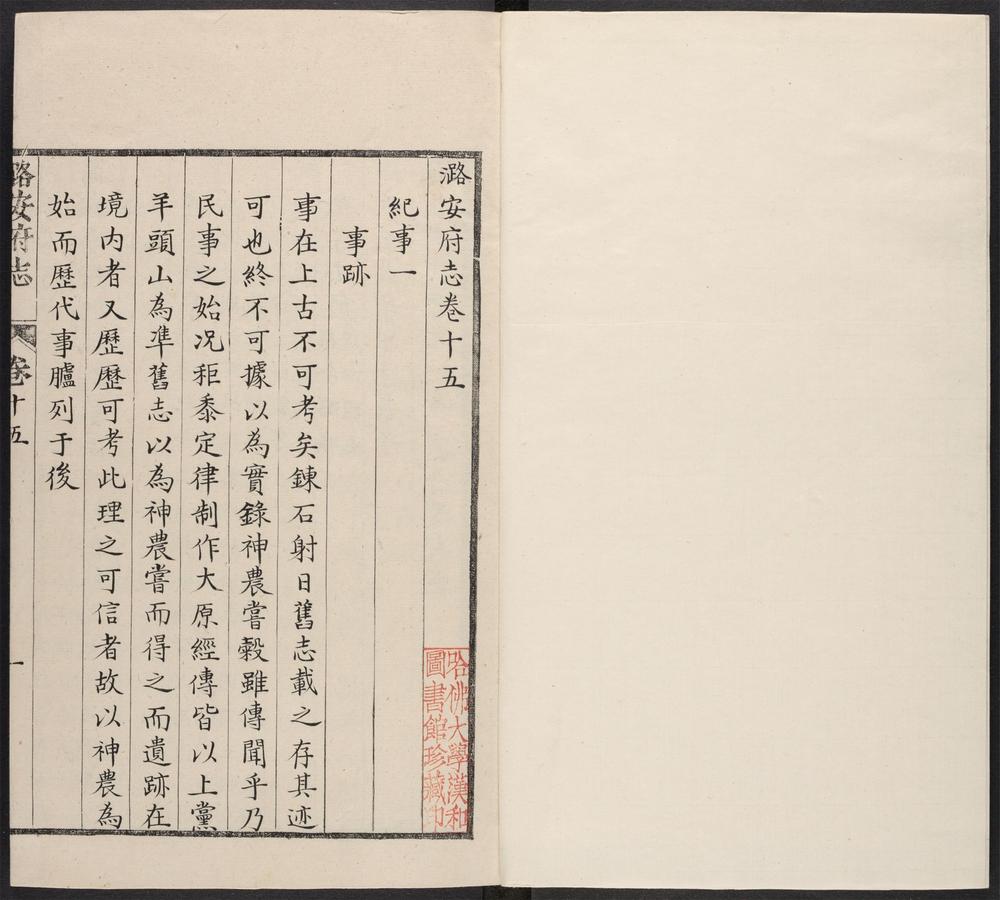 潞安府志卷十五
紀事一
事跡
事在上古不可考矣鍊石射日舊志載之存其迹
可也終不可據以為實錄神農嘗穀雖傳聞乎乃
民事之始况秬黍定律制作大原經傳皆以上黨
羊頭山為準舊志以為神農嘗而得之而遺跡在
境内者又歷歷可考此理之可信者故以神農為
始而歷代事臚列于後
潞安府志 卷十五 一
哈佛大學漢和
圖書館珍藏印